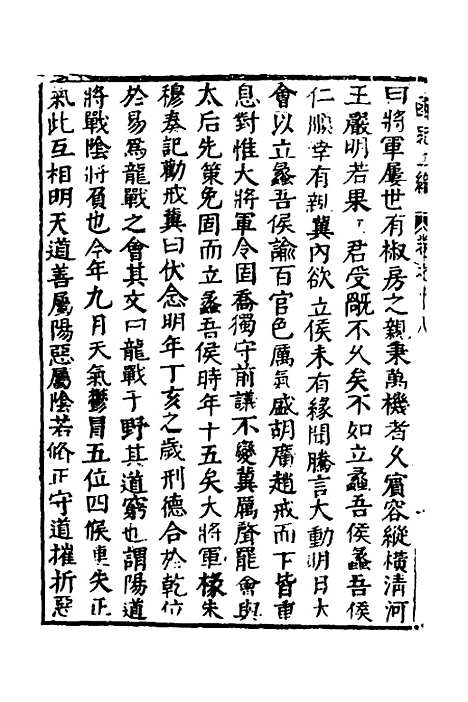 曰將軍屢世有椒房之親秉萬機者久賓容縱橫清河
王嚴明若果立君受旤不久矣不如立蠡吾侯蠡吾侯
仁順幸有親冀內欲立侯未有緣聞騰言大動明日大
會以立蠡吾侯諭百官色厲氣盛胡廣趙戒而下皆重
息對惟大將軍令固喬獨守前議不變冀厲聲罷會與
太后先策免固而立蠡吾侯時年十五矣大將軍椽朱
穆奏記勸戒冀曰伏念明年丁亥之歲刑德合於乾位
於易爲龍戰之會其文曰龍戰于野其道窮也謂陽道
將戰陰將負也今年九月天氣鬱冒五位四候連失正
氣此互相明天道善屬陽惡屬陰若修正守道摧折惡